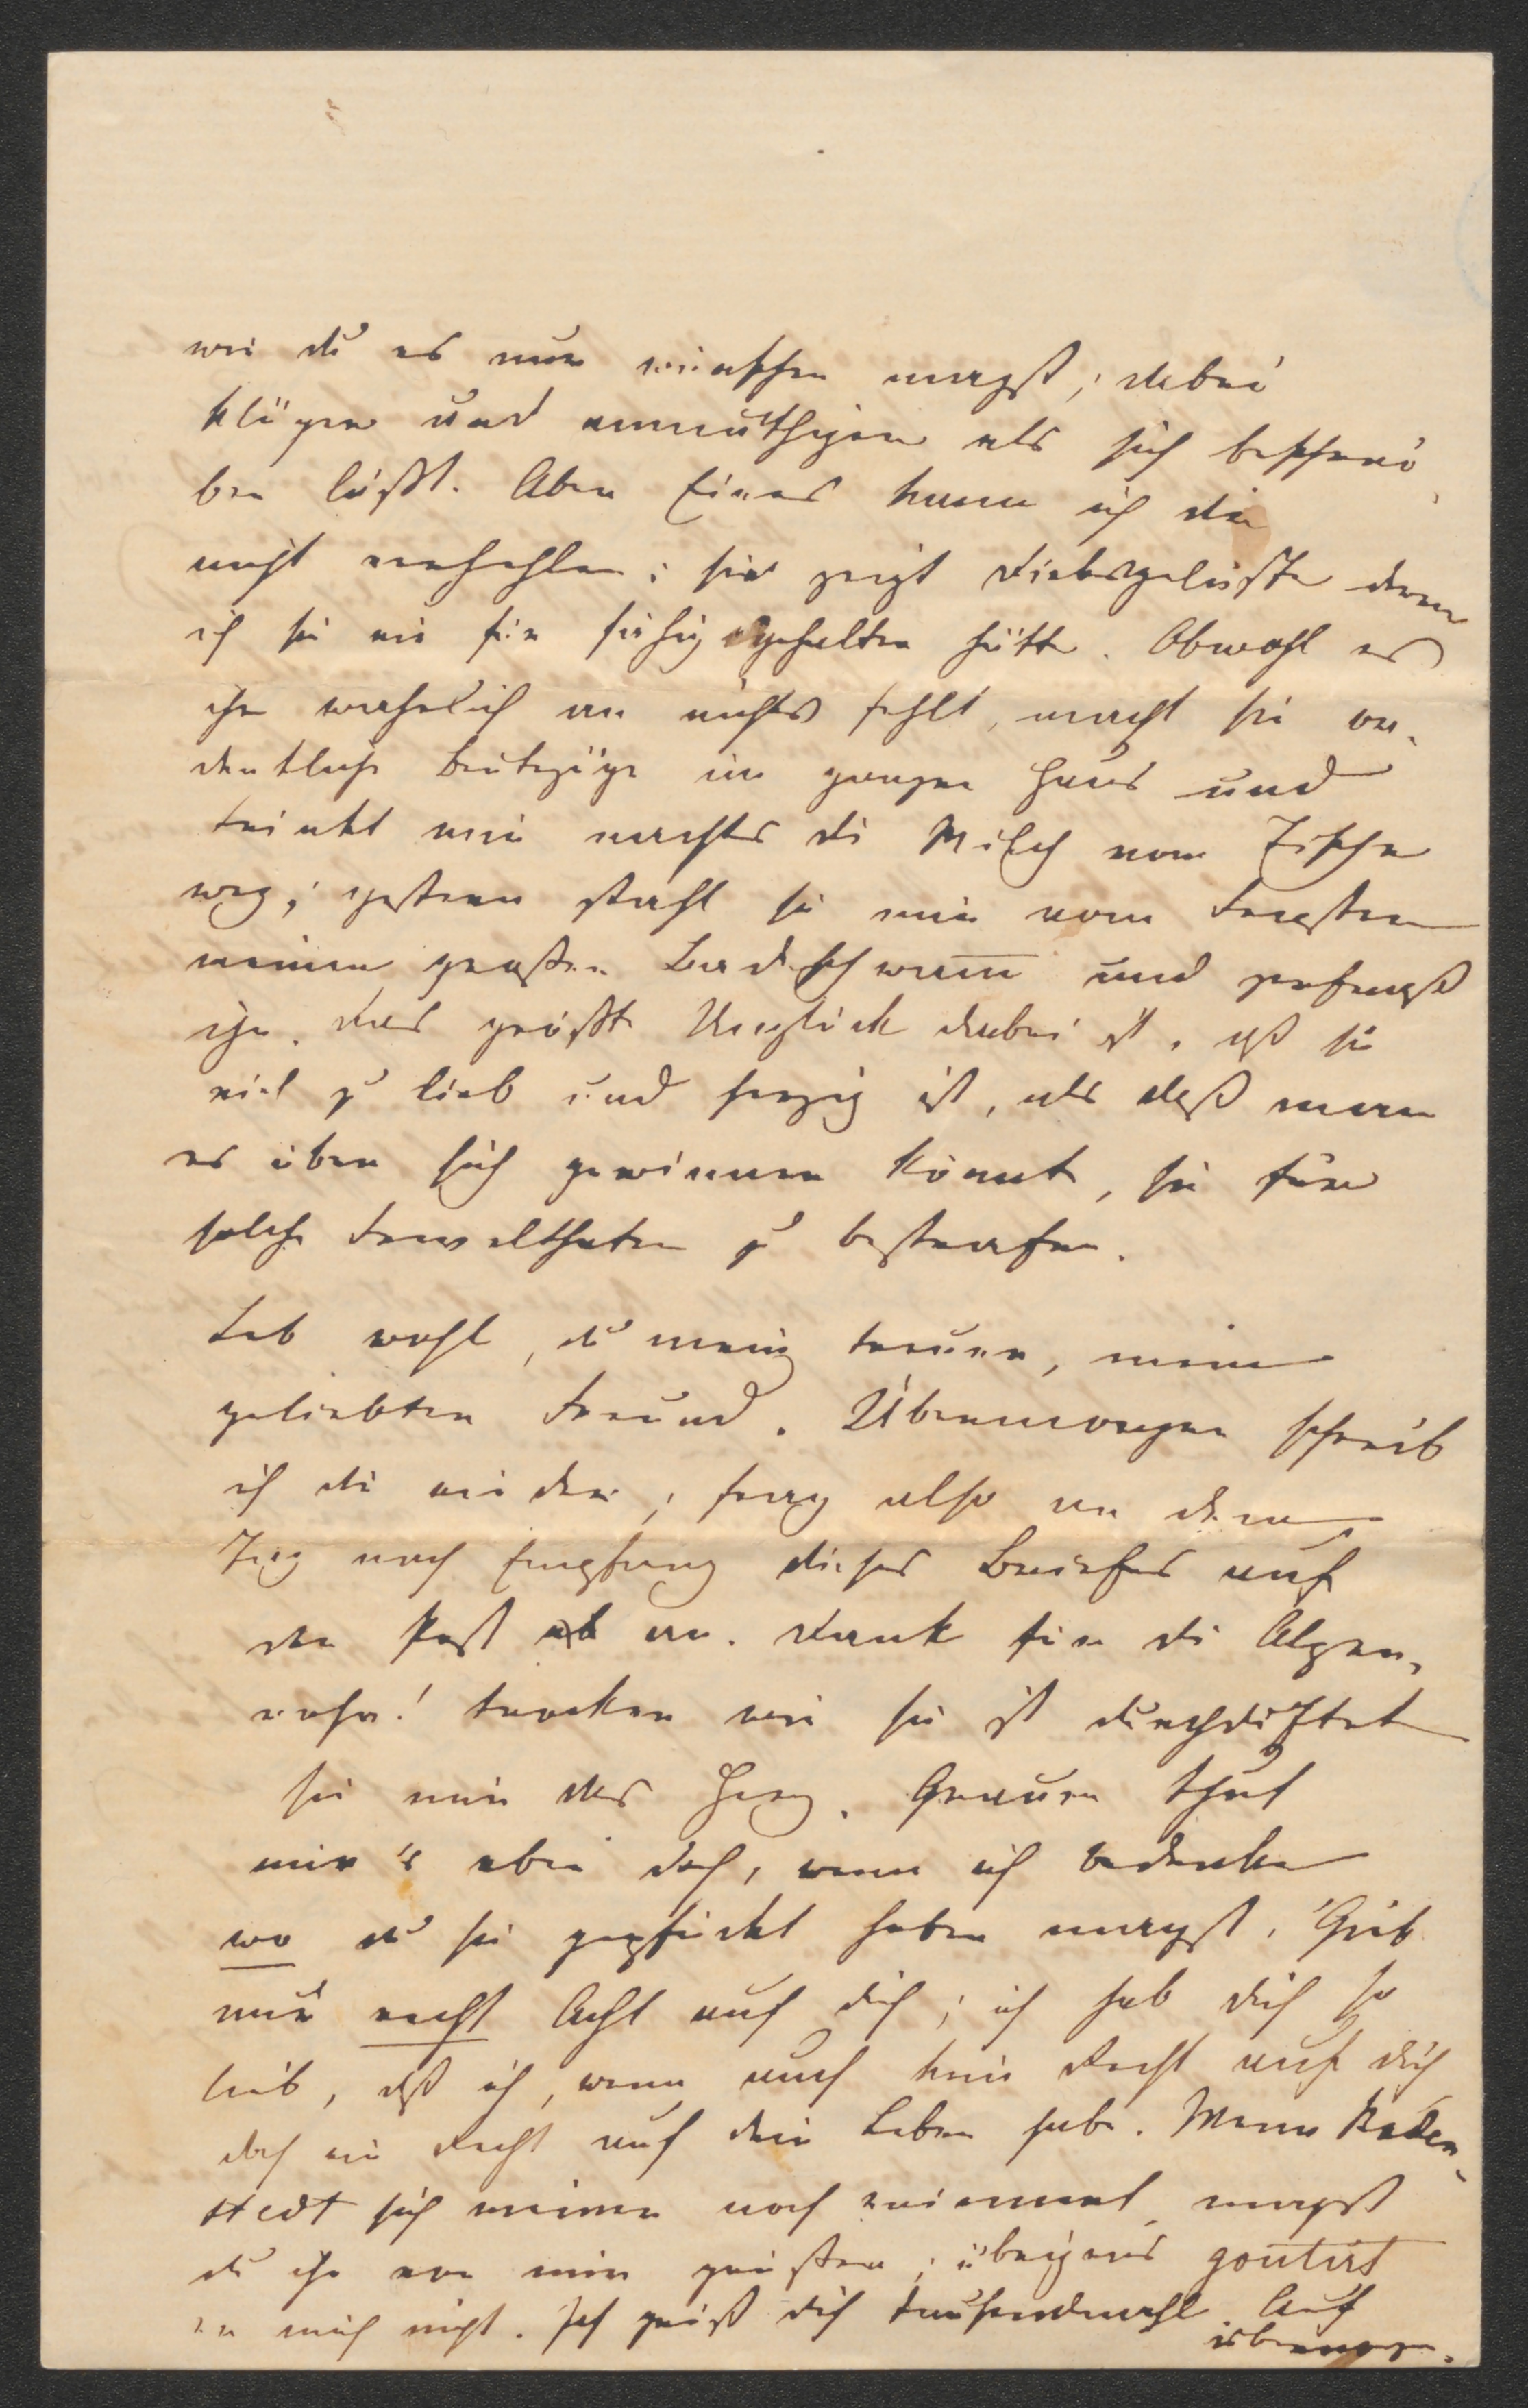 wie du es nur wünschen magst; dabei
klüger und anmuthiger als sich beschrei-
ben läßt. Aber Eines kann ich dir
nicht verhehlen: sie zeigt Diebsgelüste deren
ich sie nie für fähig gehalten hätte. Obwohl es
ihr wahrlich an nichts fehlt, macht sie or-
dentliche Beutezüge im ganzen Haus und
trinkt mir nachts die Milch vom Tische
weg; gestern stahl sie mir vom Fenster
meinen großen Badeschwam̅ und zerfraß
ihn. Das größte Unglück dabei ist, daß sie
viel zu lieb und herzig ist, als daß man
es über sich gewinnen könnte, sie für
solche Frevelthaten zu bestrafen.
Leb wohl, du mein teurer, mein
geliebter Freund. Übermorgen schreib
ich dir wieder; frag also an dem
Tag nach Empfang dieses Briefes auf
der Post an. Dank für die Alpen-
rose! trocken wie sie ist durchduftet
sie mir das Herz. Grauen thut
mir's aber doch, wenn ich bedenke
wo du sie gepflückt haben magst. Gieb
nur recht Acht auf dich; ich hab dich so
lieb, daß ich, wenn auch kein Recht auf dich
doch ein Recht auf dein Leben habe. Wenn Boden-
stedt sich meiner noch erinnert, magst
du ihn von mir grüßen; übrigens goutirt
er mich nicht. Ich grüß dich tausendmahl. Auf
übermorgen.